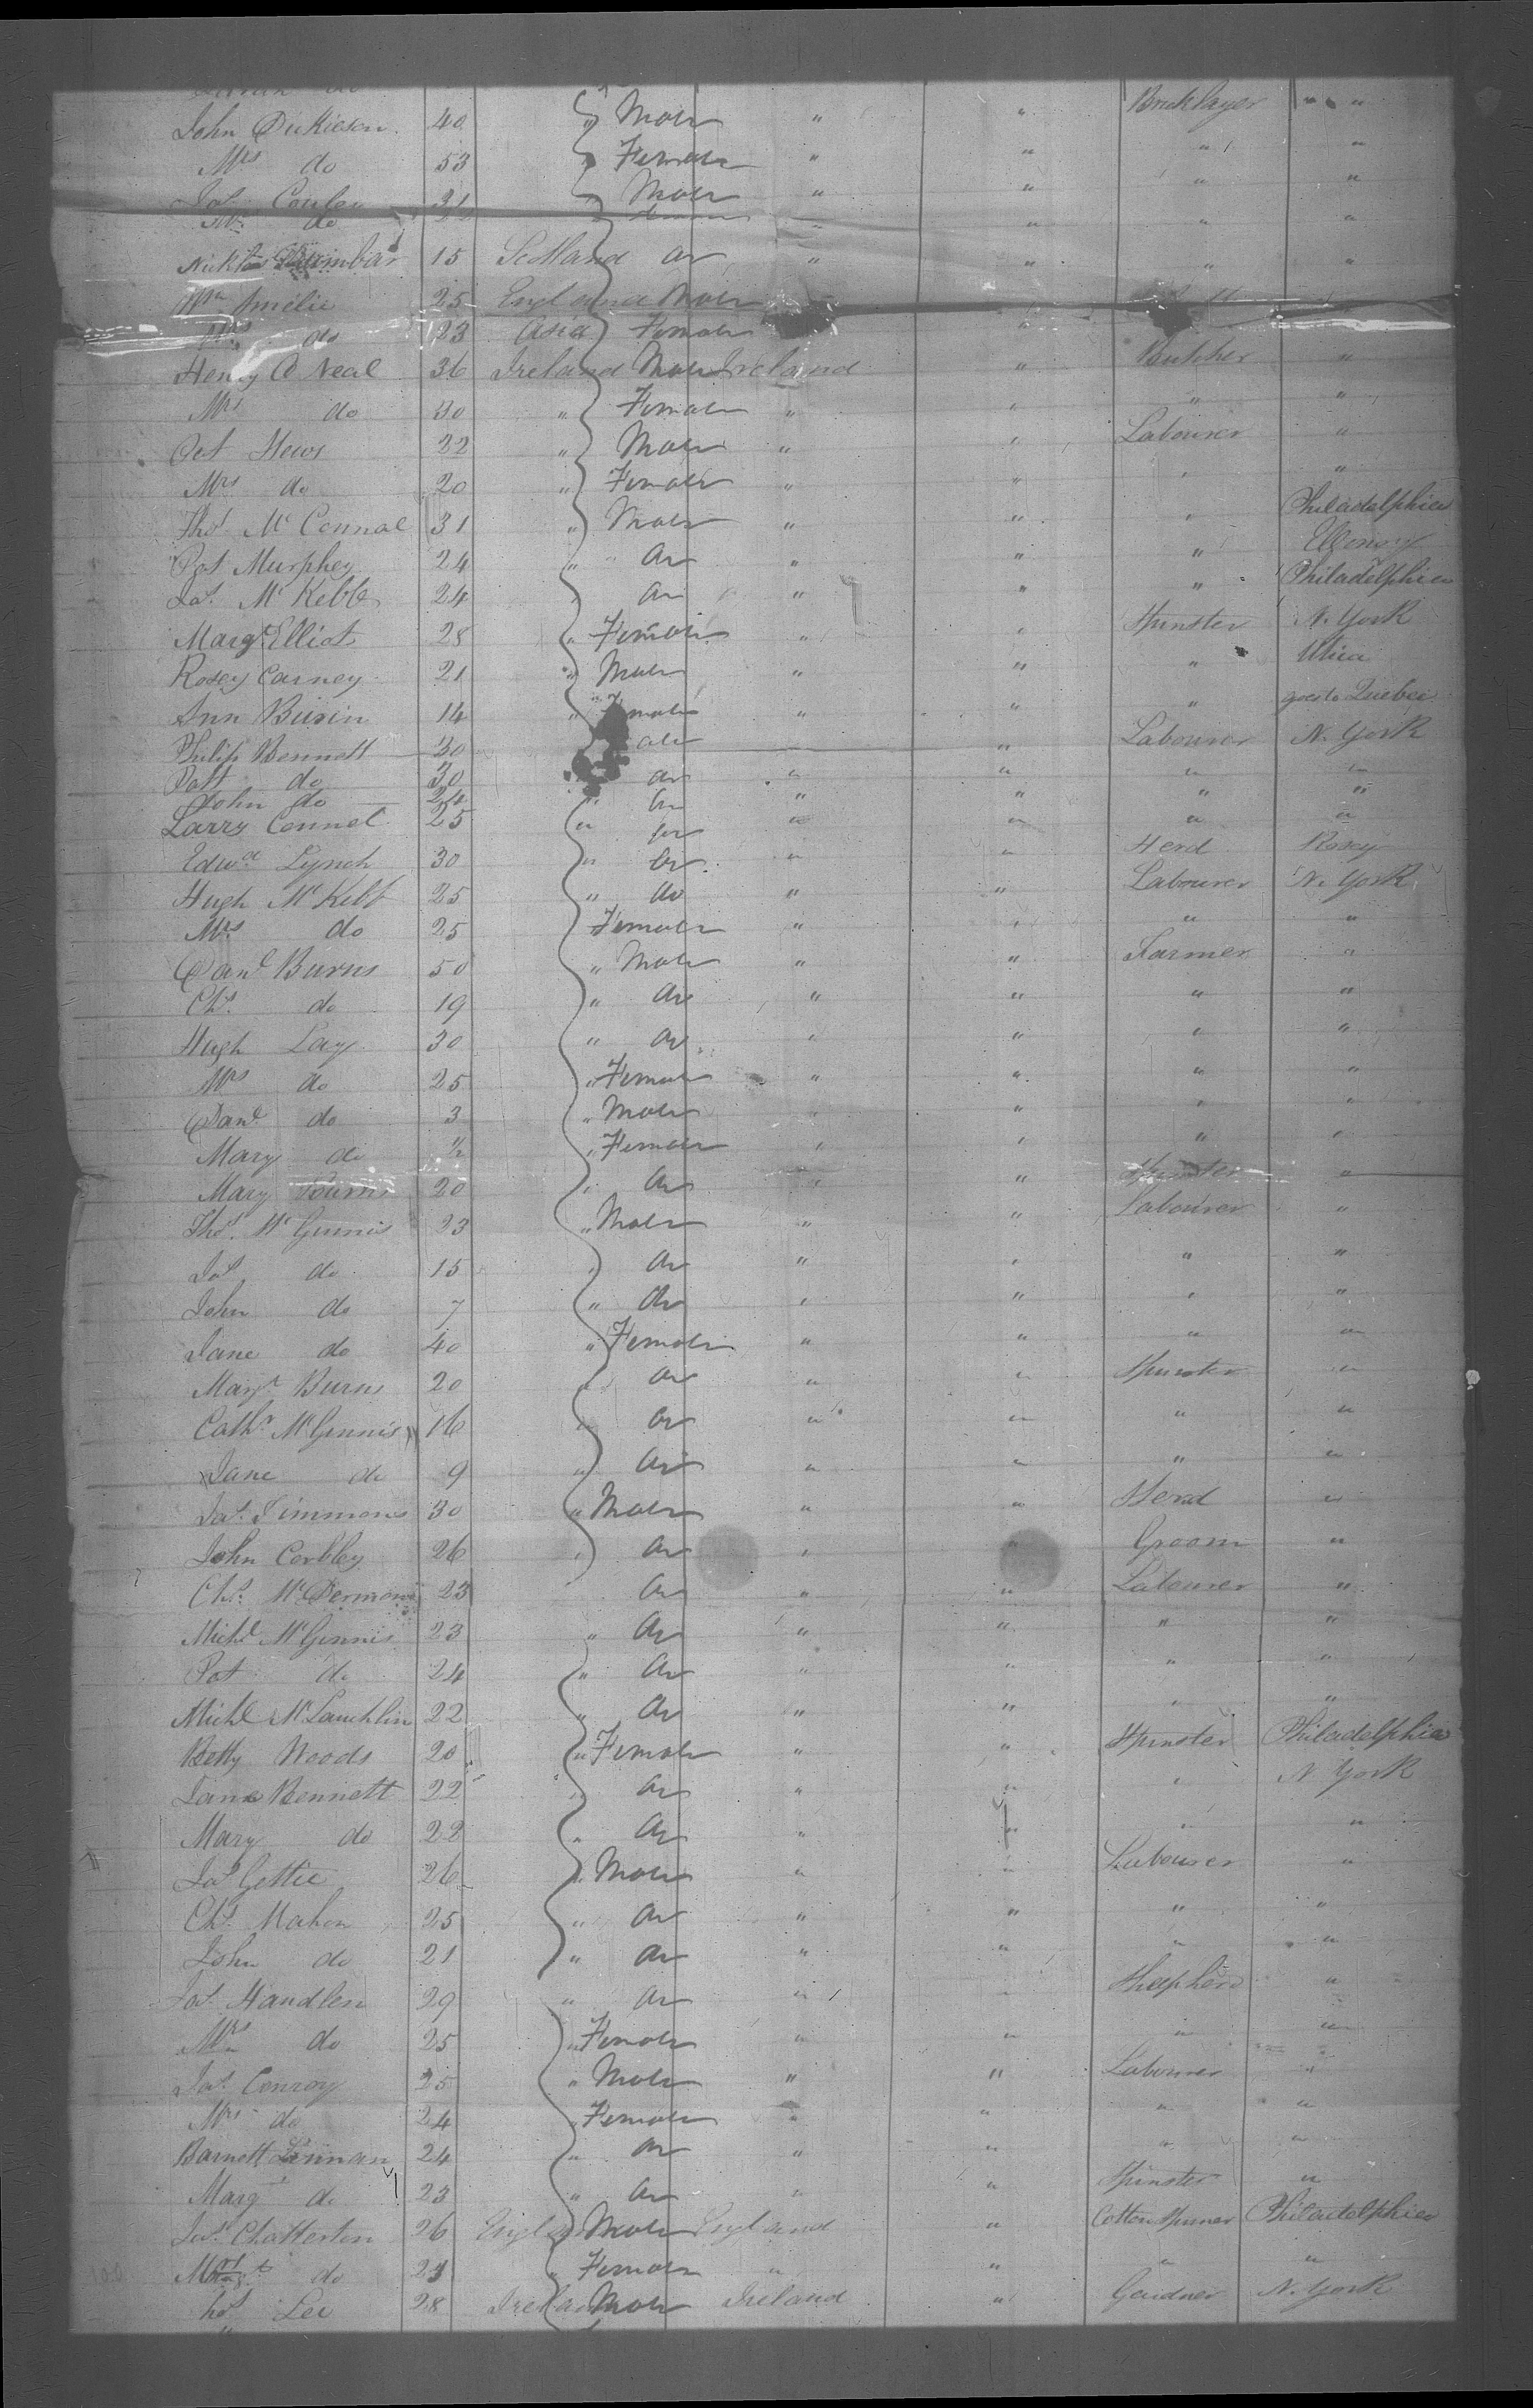 John Dickieson 40 " Male " " Bricklayer " "
Mrs do 53 " Female " " " "
Jas Conley 31 Male " " " "
Mrs do " " " "
15 Scotland do " " " "
Wm Amelie 25 England Male
Mrs do 23 Asia Female "
Henry O Neal 36 Ireland Male Ireland " Butcher "
Mrs do 30 " Female " " " "
Pat Hews 22 " Male " " Labourer "
Mrs do 20 " Female " " " "
Thos Mc Connal 31 " Male " " " Philadelphia
Pat Murphey 24 " do " " "
Jas Mc Kebb 24 do " " " Philadelphia
Margt Elliot 28 " Female " " Spinster N. York
Rosey Carney 21 " Male " " " Utica
Ann 14 " Female " " " goes to Quebec
Philip Bennett 30 Male " Labourer N. York
Patt do 30 do " " " "
John do 24 " do " " " "
Larry Connel 25 " do " " " "
Edwd Lynch 30 " do " " Herd
Hugh Mc Kebb 25 " do " " Labourer N. York
Mrs do 25 Female " " " "
Danl Burns 50 " Male " " Farmer "
Chs do 19 " do " " " "
Hugh Lay 30 " do " " " "
Mrs do 25 " Female " " " "
Danl do 3 " Male " " " "
Mary do 1/2 " Female " " " "
Mary Burns 20 " do " " Spinster "
Thos Mc Ginnis 23 " Male " " Labourer "
Jas do 15 " do " " " "
John do 7 " do " " " "
Jane do 40 " Female " " " "
Margt Burns 20 " do " " Spinster "
Cathr Mc Ginnis 16 " do " " " "
Jane do 9 " do " " " "
Jas Timmons 30 " Male " " Herd "
John Corbley 26 " do " " Groom "
Chs Mc Dermont 23 do " " Labourer "
Michl Mc Ginnis 23 " do " " " "
Pat do 24 " do " " " "
Michl Mc Lauchlin 22 " do " " " "
Betty Woods 20 " Female " " Spinster Philadelphia
Jane Bennett 22 " do " " " N York
Mary do 22 " do " " " "
Jas Gettie 26 " Male " " Labourer "
Chs Mahon 25 " do " " " "
John do 21 " do " " " "
Jas Handlen 29 " do " " Shepherd "
Mrs do 25 " Female " " " "
Jas Conroy 25 " Male " " Labourer "
Mrs do 24 " Female " " " "
Barnett Lennan 24 " do " " " "
Margt do 23 " do " " Spinster "
Jas Chatterton 26 England Male England " Cotton Spinner Philadelphia
do 21 " Female " " " "
Lee 28 Ireland Male Ireland " Gardner N. York